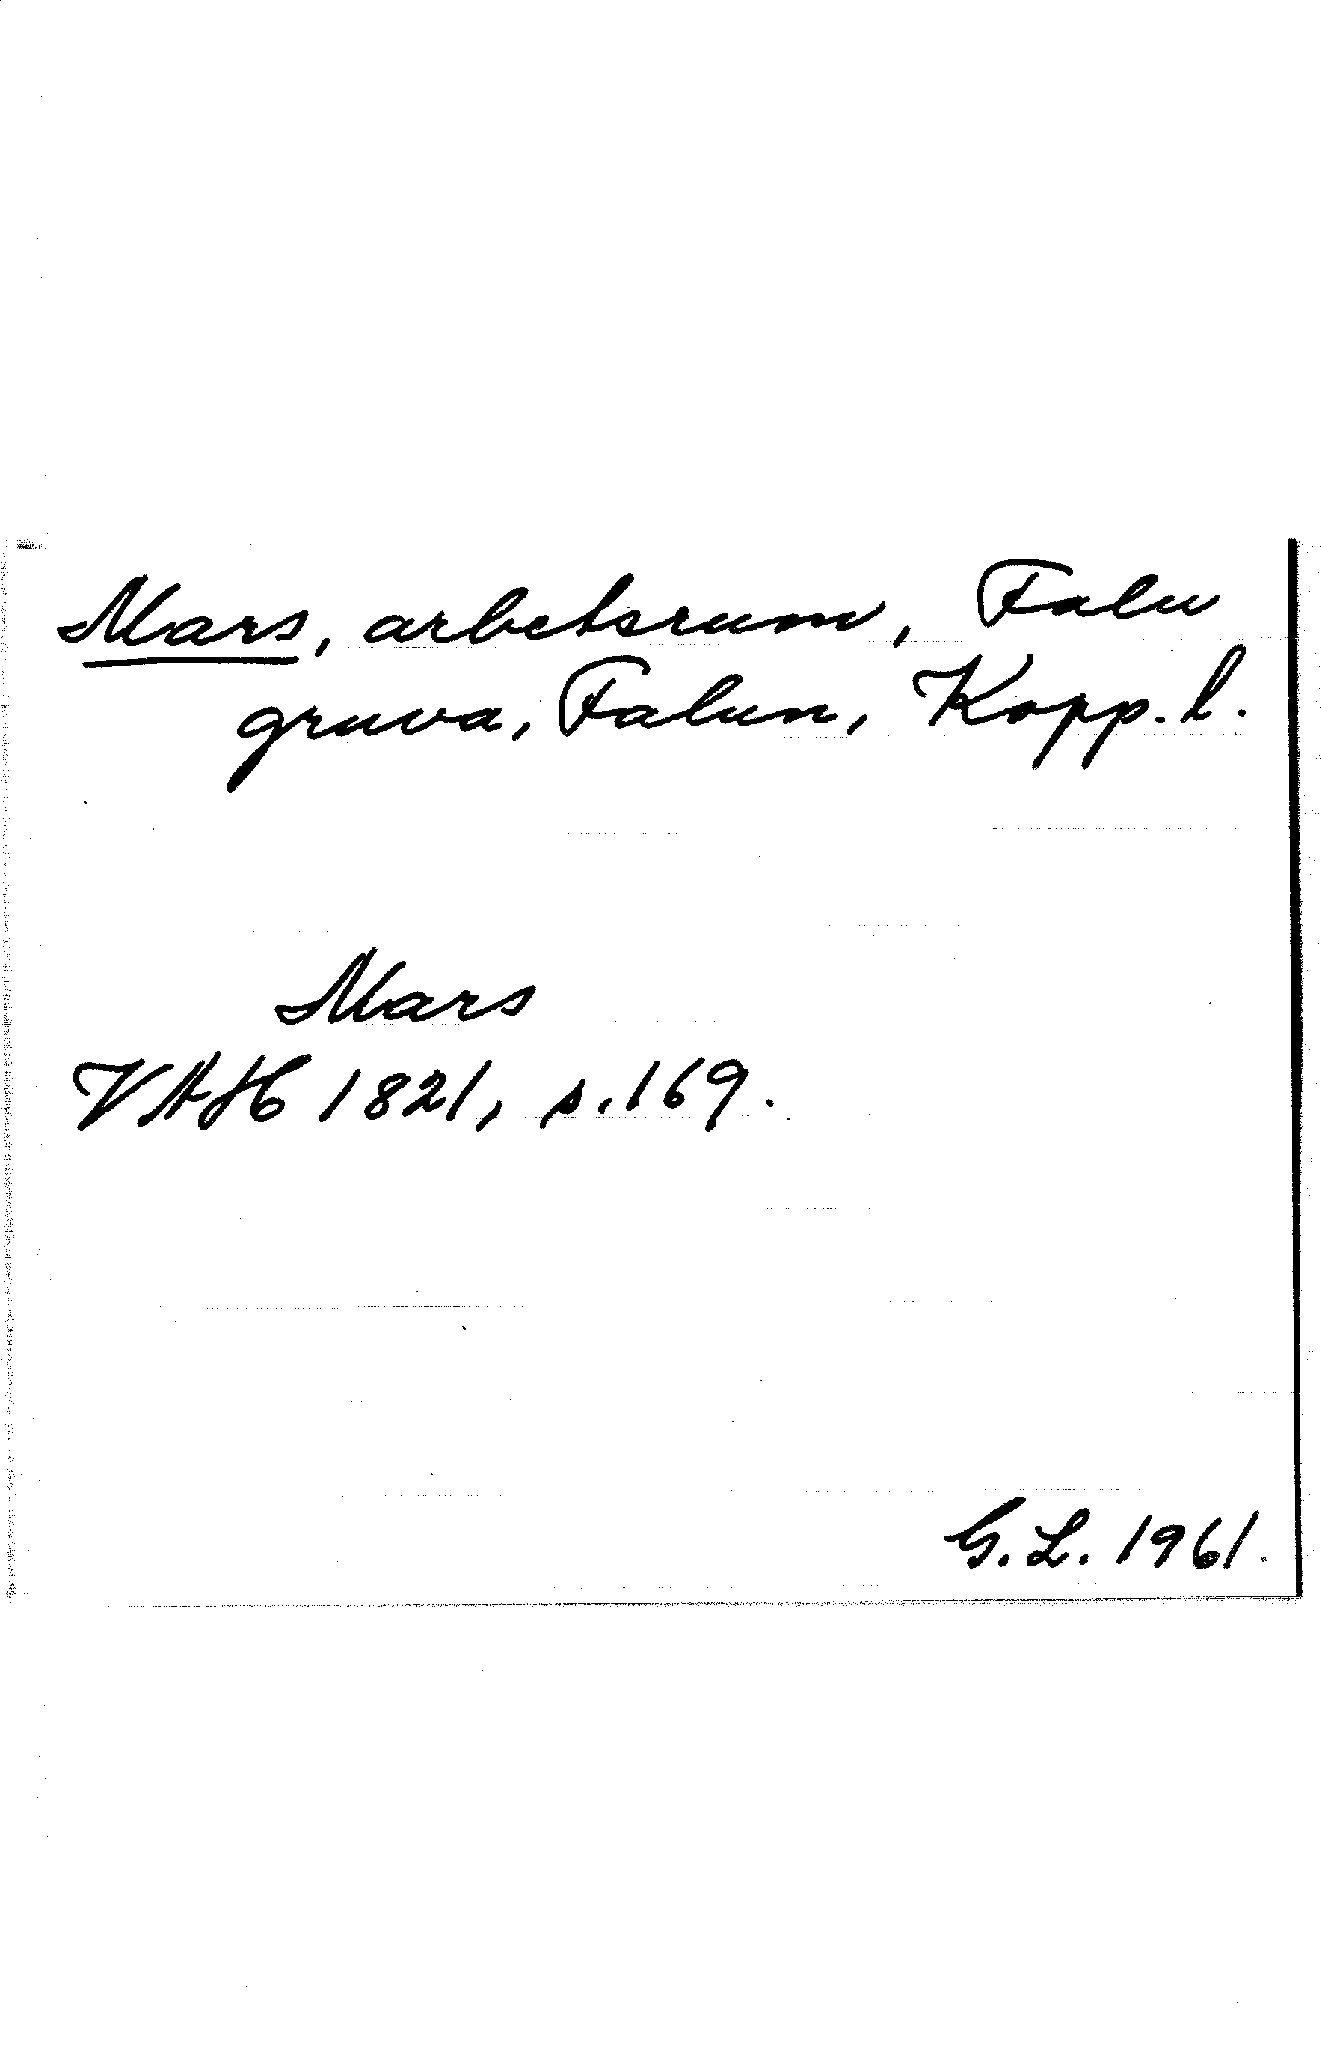 Mars, arbetsrum, Falu
gruva, Falun, Kopp. l.
Mars
VAH 1821, s. 169.
G. L. 1961.